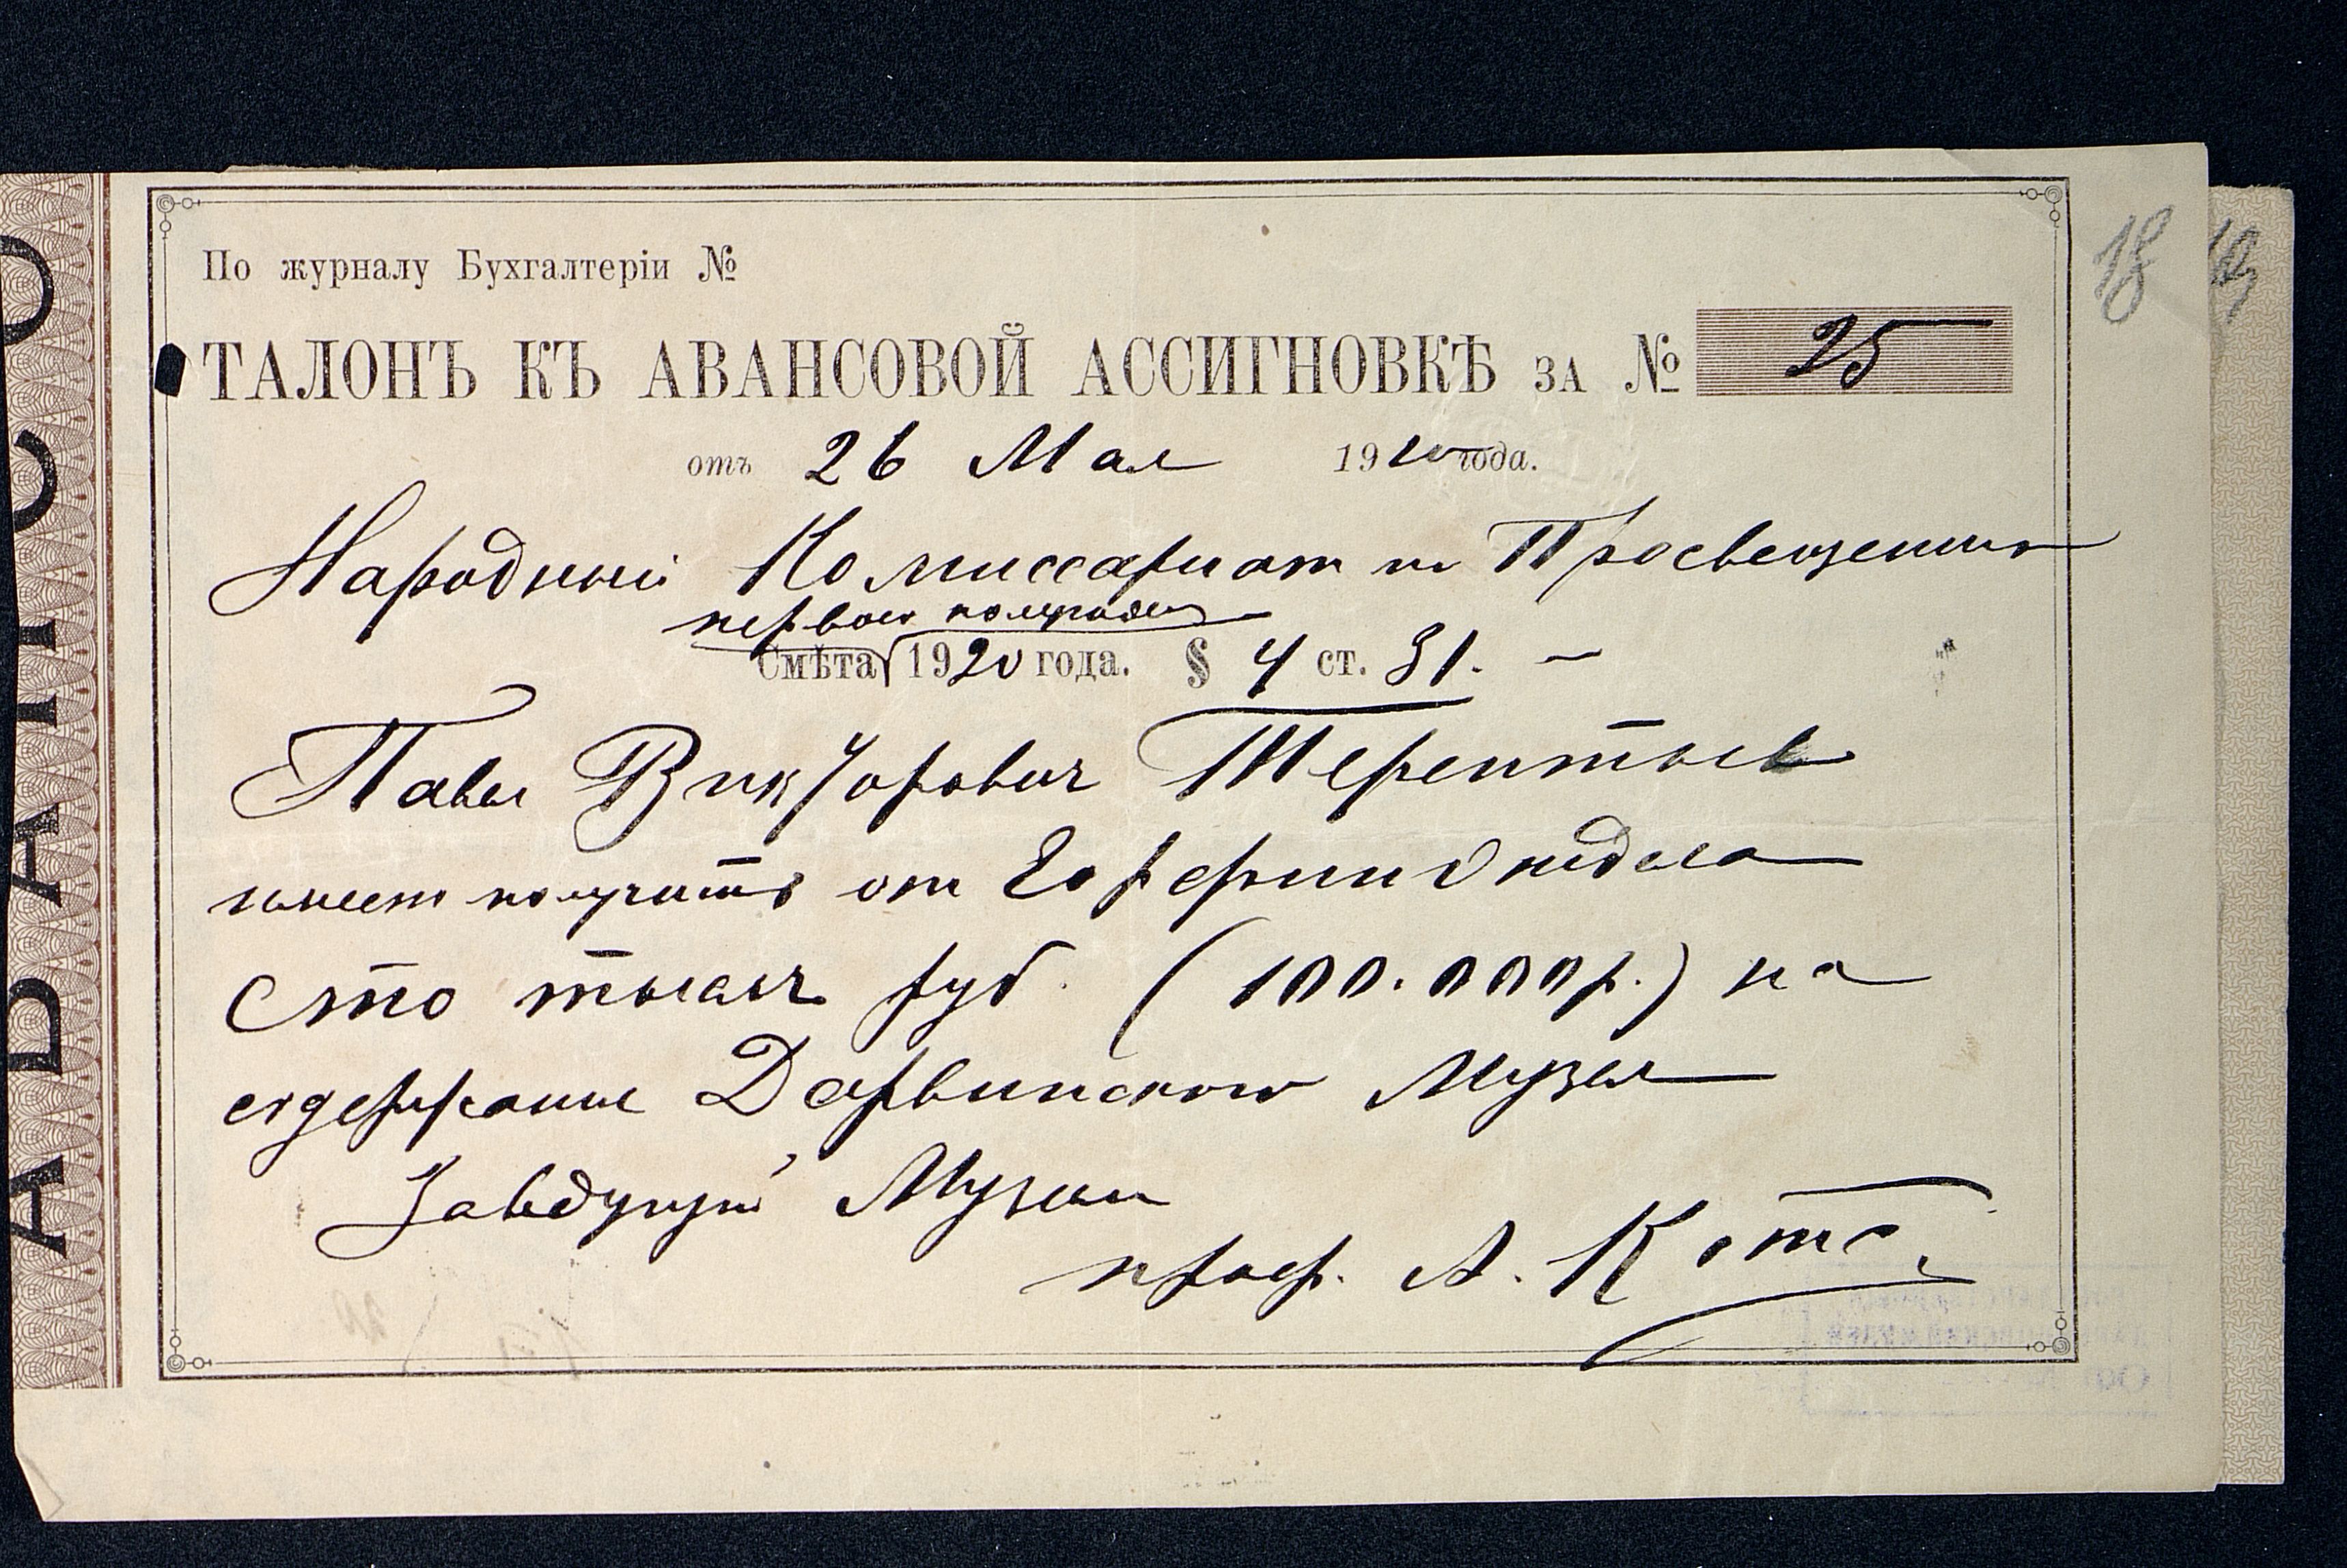 По журналу Бухгалтеріи №
ТАЛОНЪ КЪ АВАНСОВОЙ АССИГНОВКѢ ЗА № 25
отъ 26 Мая 1920 года.
Народный Комиссариат по Просвещению
первого полугодия
Смѣта 1920 года. § 4 ст. 31. —
Павел Викторович Терентьев
имеет получить от Горфинотдела
Сто тысяч руб. (100.000р.) на
содержание Дарвинского Музея
Заведующий Музеем
проф. А. Котс
18
АВАНСО